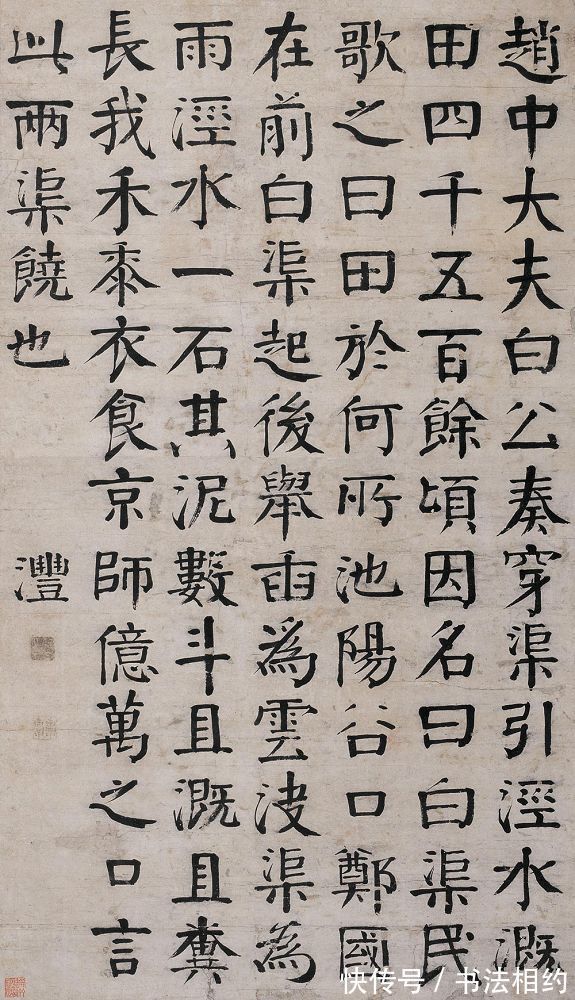 趙中大夫白公奏穿渠引涇水溉
田四千五百餘頃因名曰白渠民
歌之曰田於何所池陽谷口鄭國
在前白渠起後舉臿為雲決渠為
雨涇水一石其泥數斗且溉且糞
長我禾黍衣食京師億萬之口言
此兩渠饒也
灃
快传号 / 书法相约